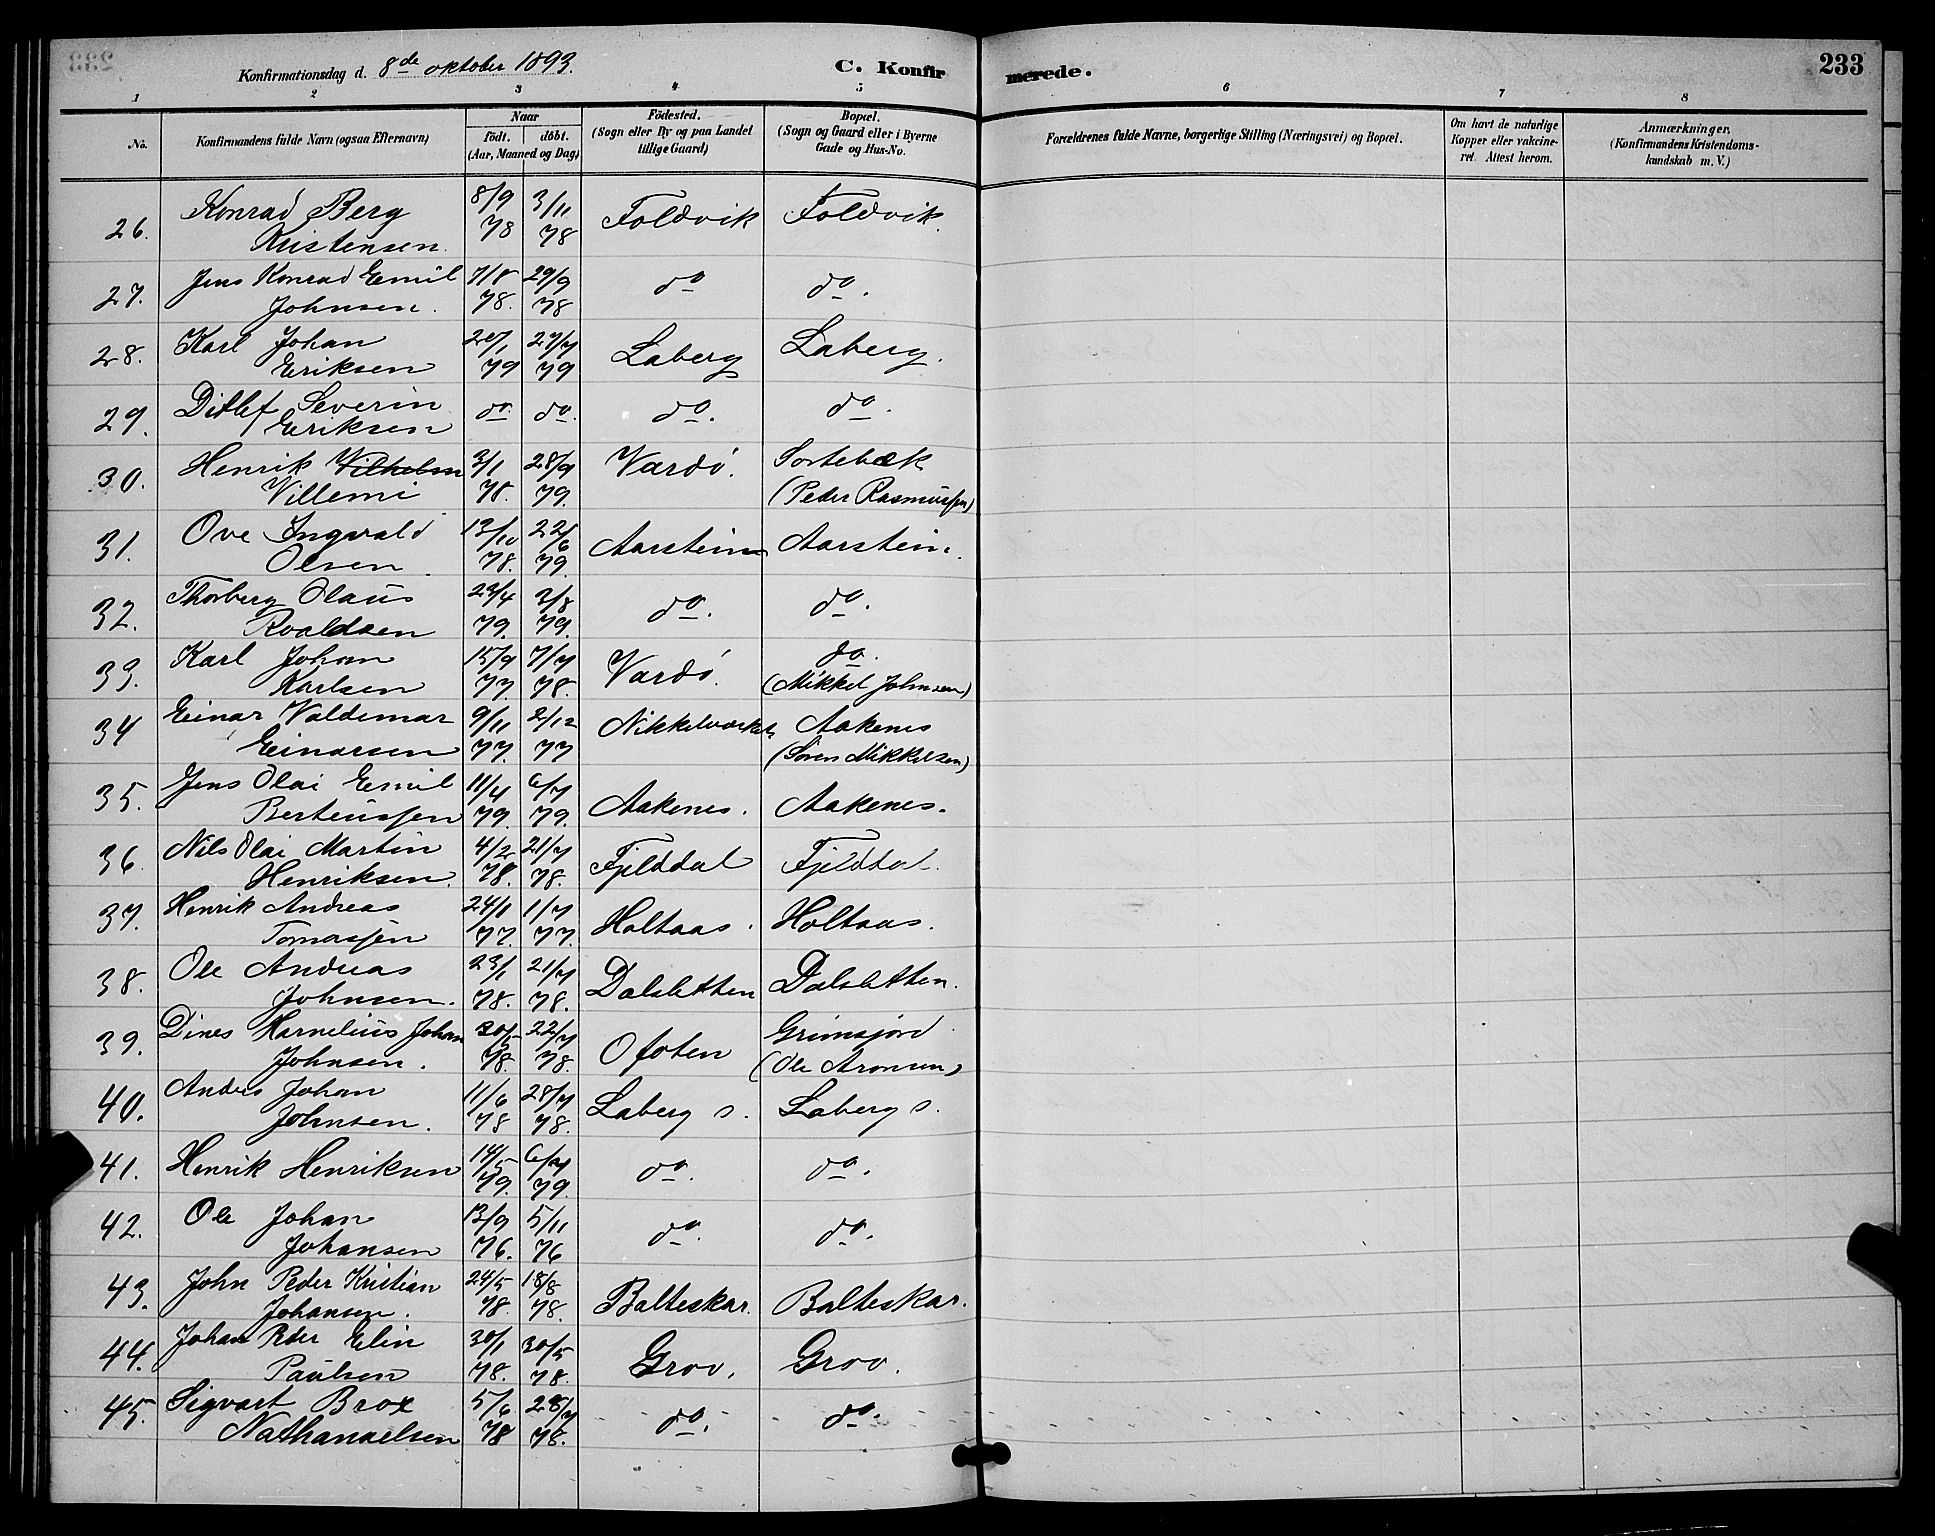 Konfirmationsdag d. 8de oktober 1893. C. Konfir merede. 233
1 2 3 4 5 6 7 8
No. Konfirmandens fulde Navn (ogsaa Efternavn) Naar födt. döbt. (Aar, Maaned og Dag) Födested. (Sogn eller By og paa Landet tillige Gaard) Bopæl. (Sogn og Gaard eller i Byerne Gade og Hus-No. Forældrenes fulde Navne, borgerlige Stilling (Næringsvei) og Bopæl. Om havt de naturlige Kopper eller vakcineret. Attest herom. Anmærkninger. (Konfirmandens Kristendomskundskab m. V.)
26. Konrad Berg 8/9 3/11 Foldvik Foldvik.
Kristensen. 78 78
27. Jens Konrad Emil 7/8 29/9 do do.
Johnsen. 78. 78
28. Karl Johan 20/1 27/7 Laberg Laberg.
Eriksen 79 79
29. Ditlef Severin do. do. do. do.
Eriksen
30. Henrik Vilhelm 3/1 28/9 Vardö. Sortebæk
Villemi 78. 79. (Peder Rasmussen)
31. Ove Ingvald 13/10 22/6 Aarstein Aarstein.
Olsen. 78. 79.
32. Thorberg Olaus 23/4 3/8 do. do.
Roaldsen 79. 79.
33. Karl Johan 15/9 7/7 Vardö. do.
Karlsen 77. 78. (Mikkel Johnsen)
34 Einar Valdemar 9/11 2/12 Nikkelværket Aakenes
Einarsen 77. 77 (Sören Mikkelsen)
35. Jens Olai Emil 11/4 6/7 Aakenes. Aakenes.
Berteussen 79. 79.
36. Nils Olai Martin 4/2 21/7 Fjelddal Fjelddal.
Henriksen. 78. 78.
37. Henrik Andreas 24/1 1/7 Holtaas. Holtaas.
Tomassen 77. 77.
38. Ole Andreas 23/1 21/7 Dalsletten Dalsletten.
Johnsen. 78. 78.
39. Dines Kornelius Johan 22/7 Ofoten Grimsjord
Johnsen. 78. 78. (Ole Aronsen)
40. Anders Johan 11/6 28/7 Laberg s. Laberg s.
Johnsen. 78 78.
41. Henrik Henriksen 14/5 6/7 do. do.
79. 79.
42. Ole Johan 13/9 5/11 do. do.
Johansen 76. 76
43. John Peder Kristian 24/5 18/8 Balteskar. Balteskar.
Johansen. 78. 78.
44. Johan Peder Elin 30/1 30/5 Grov. Grov.
Paulsen 78. 78.
45. Sigvart Brox 5/6 28/7 do. do.
Nathanaelsen 78 78.